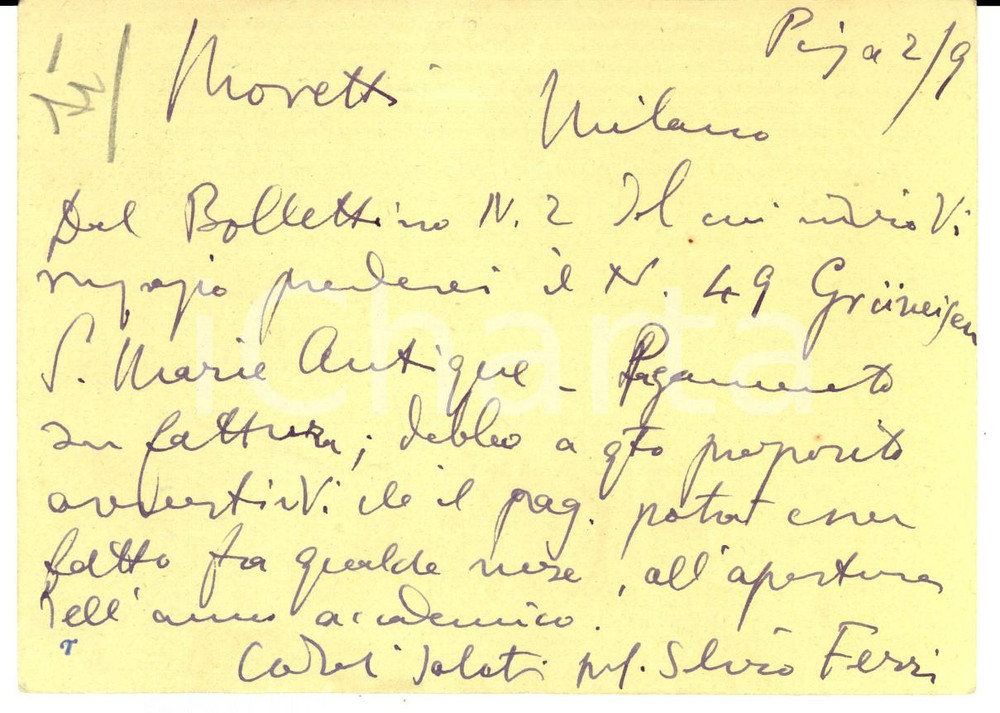 Pisa 2/9
Moretti
Milano
Dal Bollettino N. 2 del cui invio Vi
ringrazio prenderei il N. 49 Grüneisen
S. Marie Antique - Pagamento
su fattura; debbo a qto proposito
avvertirVi che il pag. potrà esser
fatto fra qualche mese, all'apertura
dell'anno accademico.
Cordiali saluti prof. Silvio Ferri
iCharta